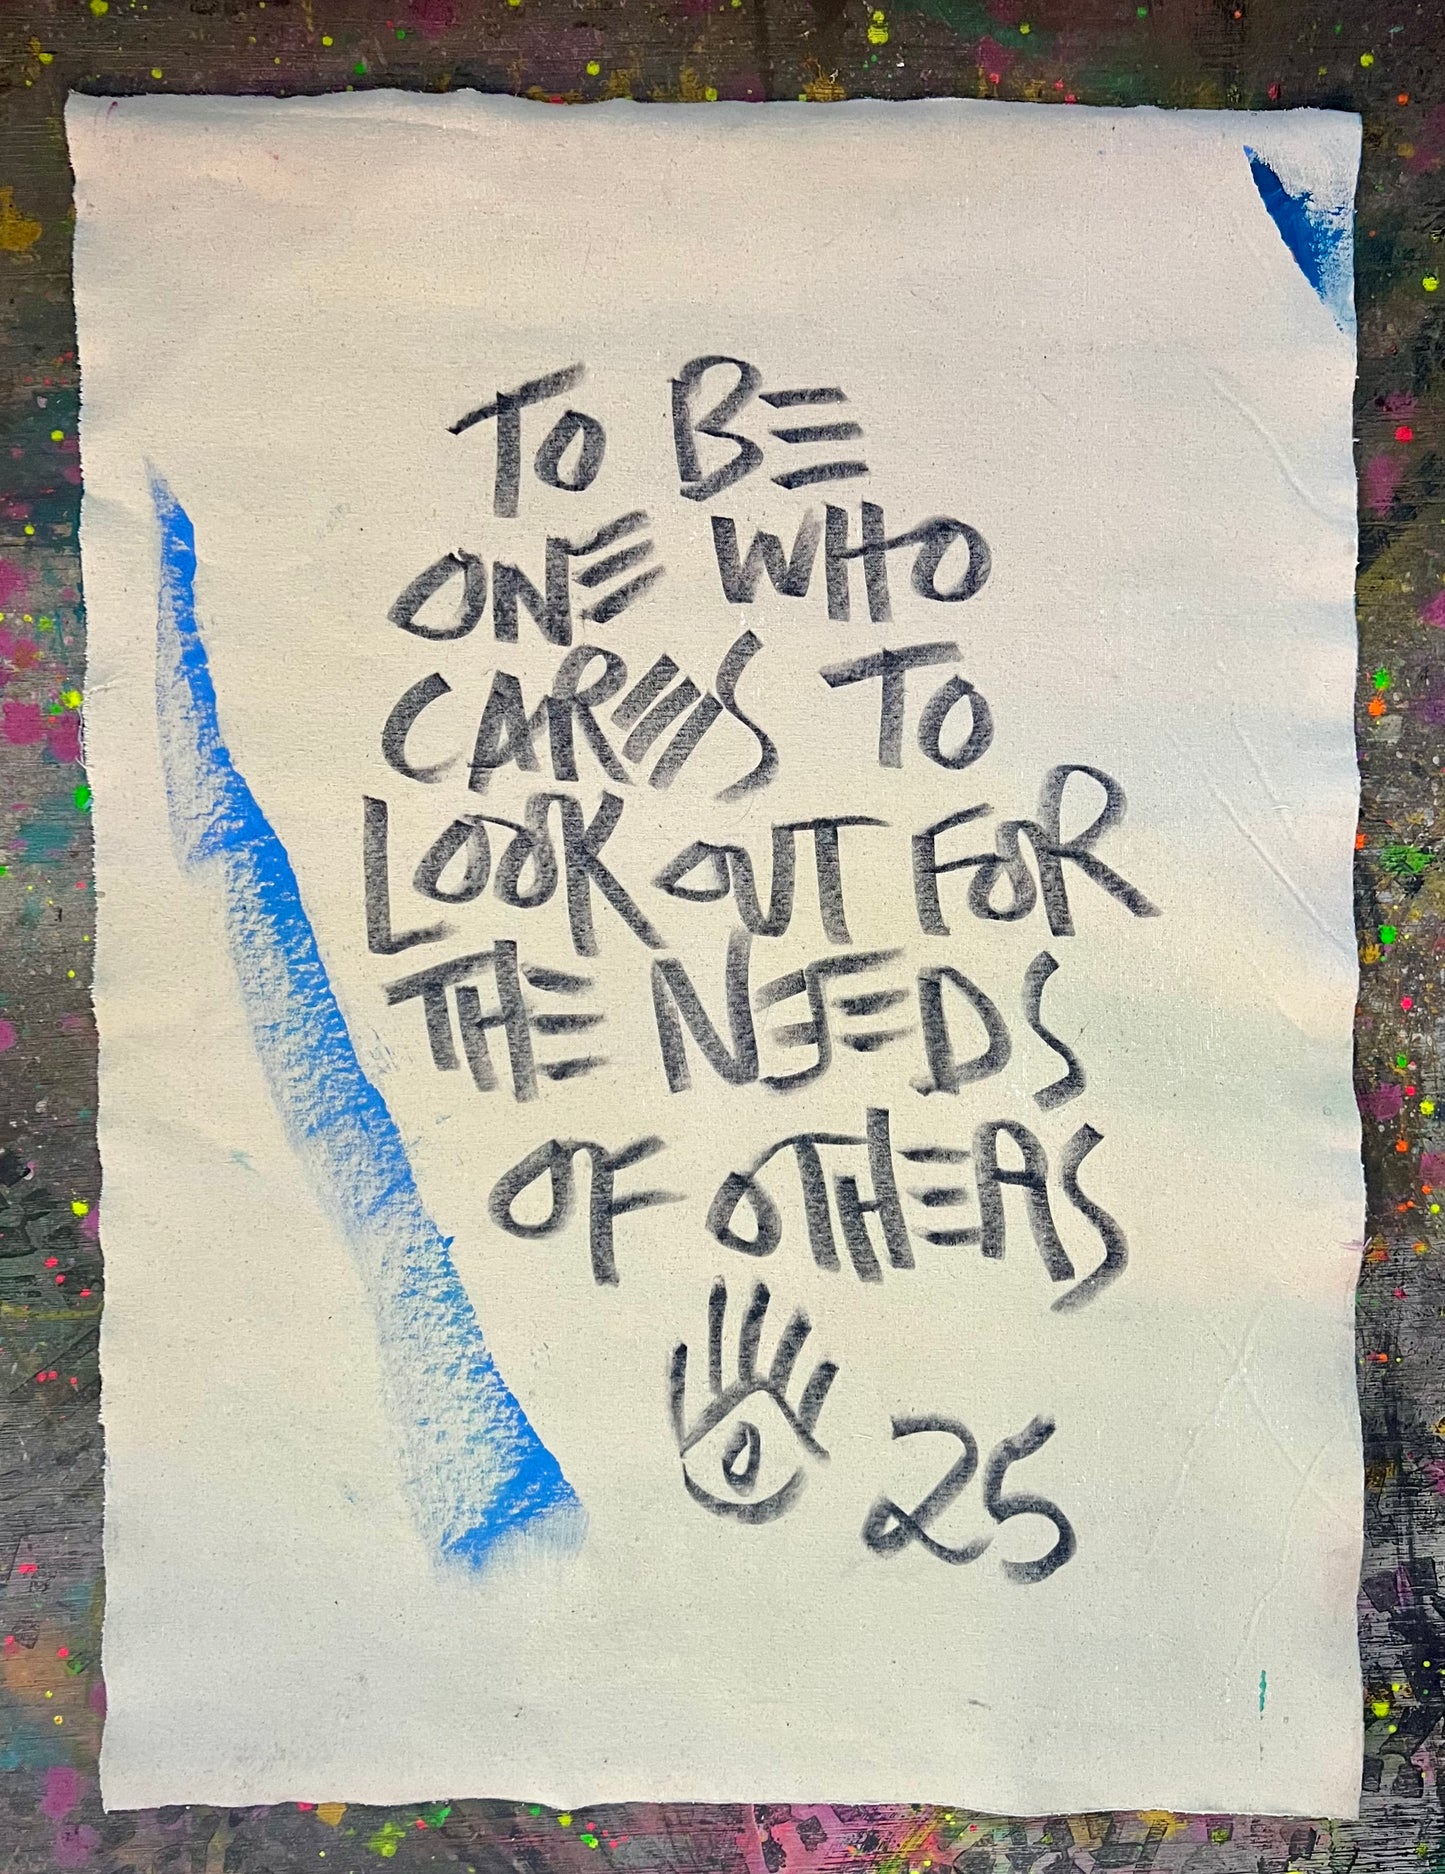 TO BE
ONE WHO
CARES TO
LOOK OUT FOR
THE NEEDS
OF OTHERS
25